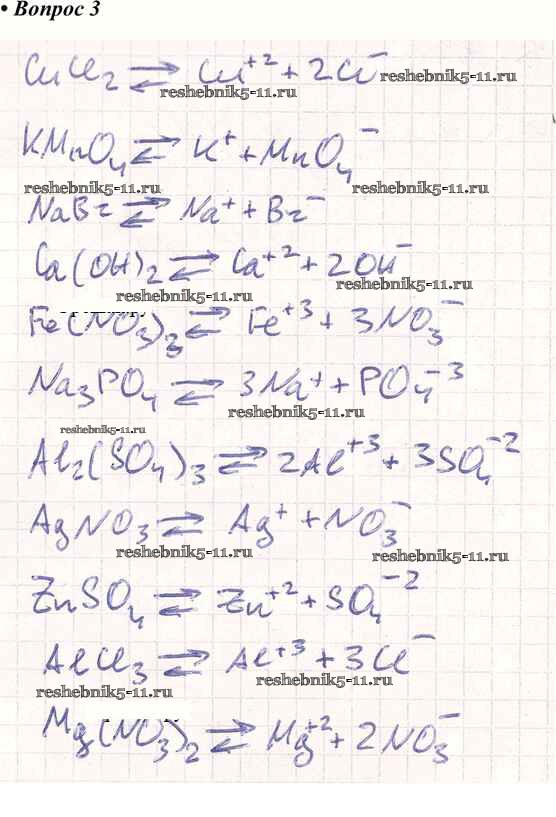 • Вопрос 3
CuCl₂ ⇄ Cu⁺² + 2Cl⁻ reshebnik5-11.ru
reshebnik5-11.ru
KMnO₄ ⇄ K⁺ + MnO₄⁻
reshebnik5-11.ru reshebnik5-11.ru
NaBr ⇄ Na⁺ + Br⁻
Ca(OH)₂ ⇄ Ca⁺² + 2OH⁻
reshebnik5-11.ru reshebnik5-11.ru
Fe(NO₃)₃ ⇄ Fe⁺³ + 3NO₃⁻
Na₃PO₄ ⇄ 3Na⁺ + PO₄⁻³
reshebnik5-11.ru
reshebnik5-11.ru
Al₂(SO₄)₃ ⇄ 2Al⁺³ + 3SO₄⁻²
AgNO₃ ⇄ Ag⁺ + NO₃⁻
reshebnik5-11.ru reshebnik5-11.ru
ZnSO₄ ⇄ Zn⁺² + SO₄⁻²
AlCl₃ ⇄ Al⁺³ + 3Cl⁻
reshebnik5-11.ru reshebnik5-11.ru
Mg(NO₃)₂ ⇄ Mg⁺² + 2NO₃⁻